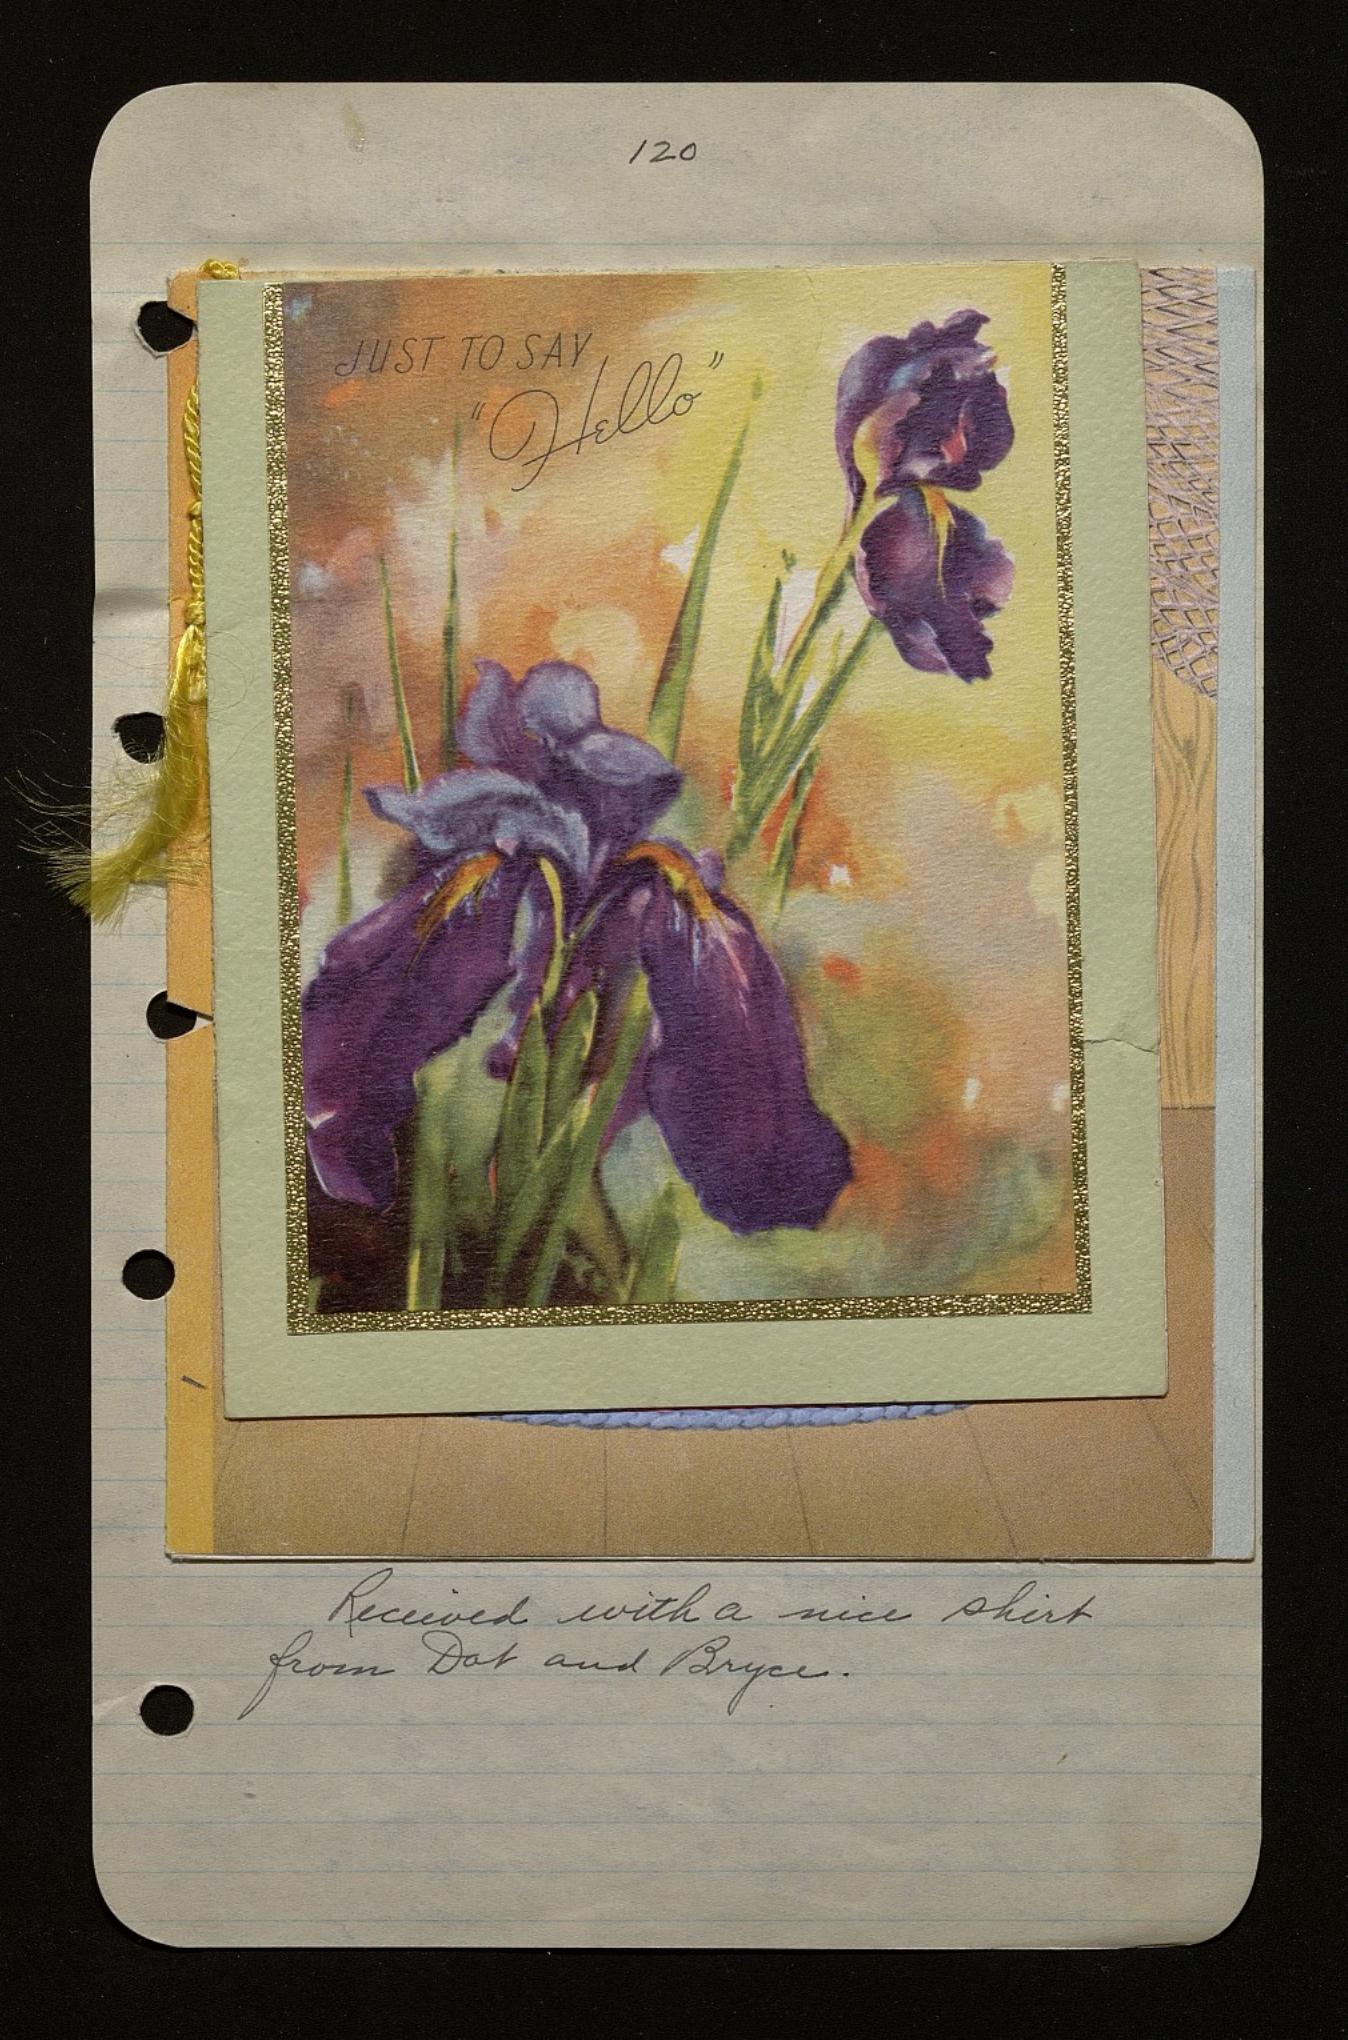 120
JUST TO SAY
"Hello"
Received with a nice shirt
from Dot and Bryce.